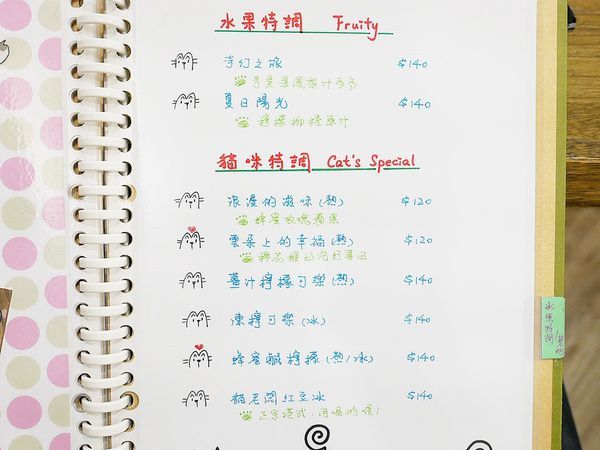 水果特調 Fruity
奇幻之旅 $140
奇異果鳳梨汁多多
夏日陽光 $140
檸檬柳橙原汁
貓咪特調 Cat's Special
浪漫的滋味(熱) $120
蜂蜜玫瑰蘋果
雲朵上的幸福(熱) $120
薑汁檸檬可樂(熱) $140
凍檸可樂(冰) $140
蜂蜜鹹檸檬(熱/冰) $140
貓老闆紅豆冰 $140
正宗港式,用喝的喔!
水果特調